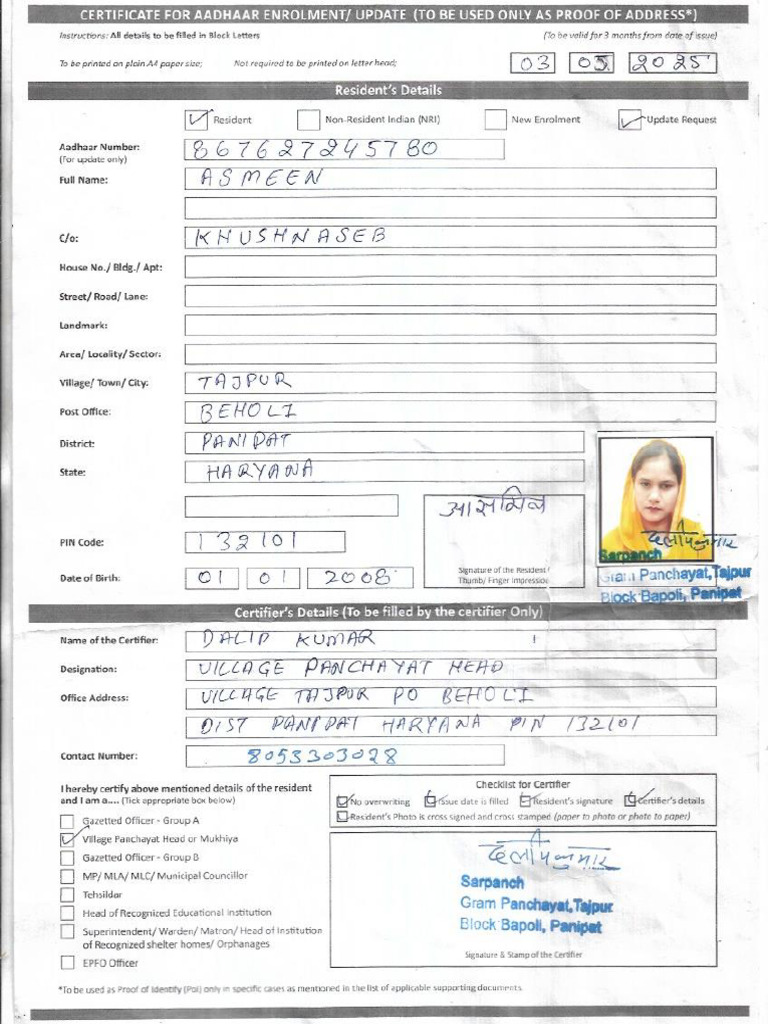 CERTIFICATE FOR AADHAAR ENROLMENT/ UPDATE (TO BE USED ONLY AS PROOF OF ADDRESS*)
Instructions: All details to be filled in Block Letters (To be valid for 3 months from date of issue)
To be printed on plain A4 paper size; Not required to be printed on letter head; 03 05 2025
Resident's Details
Resident Non-Resident Indian (NRI) New Enrolment Update Request
Aadhaar Number: 867627245780
(For update only)
Full Name: ASMEEN
C/o: KHUSHNASEB
House No./ Bldg./ Apt:
Street/ Road/ Lane:
Landmark:
Area/ Locality/ Sector:
Village/ Town/ City: TAJPUR
Post Office: BEHOLI
District: PANIPAT
State: HARYANA
आसमिन
PIN Code: 132101
दलीप कुमार
Sarpanch
Gram Panchayat, Tajpur
Block Bapoli, Panipat
Signature of the Resident/
Thumb/ Finger Impression
Date of Birth: 01 01 2008
Certifier's Details (To be filled by the certifier Only)
Name of the Certifier: DALIP KUMAR
Designation: VILLAGE PANCHAYAT HEAD
Office Address: VILLAGE TAJPUR PO BEHOLI
DIST PANIPAT HARYANA PIN 132101
Contact Number: 8053303028
I hereby certify above mentioned details of the resident
and I am a.... (Tick appropriate box below)
Gazetted Officer - Group A
Village Panchayat Head or Mukhiya
Gazetted Officer - Group B
MP/ MLA/ MLC/ Municipal Councillor
Tehsildar
Head of Recognized Educational Institution
Superintendent/ Warden/ Matron/ Head of Institution
of Recognized shelter homes/ Orphanages
EPFO Officer
Checklist for Certifier
No overwriting Issue date is filled Resident's signature Certifier's details
Resident's Photo is cross signed and cross stamped (paper to photo or photo to paper)
दलीप कुमार
Sarpanch
Gram Panchayat, Tajpur
Block Bapoli, Panipat
Signature & Stamp of the Certifier
*To be used as Proof of Identity (PoI) only in specific cases as mentioned in the list of applicable supporting documents.